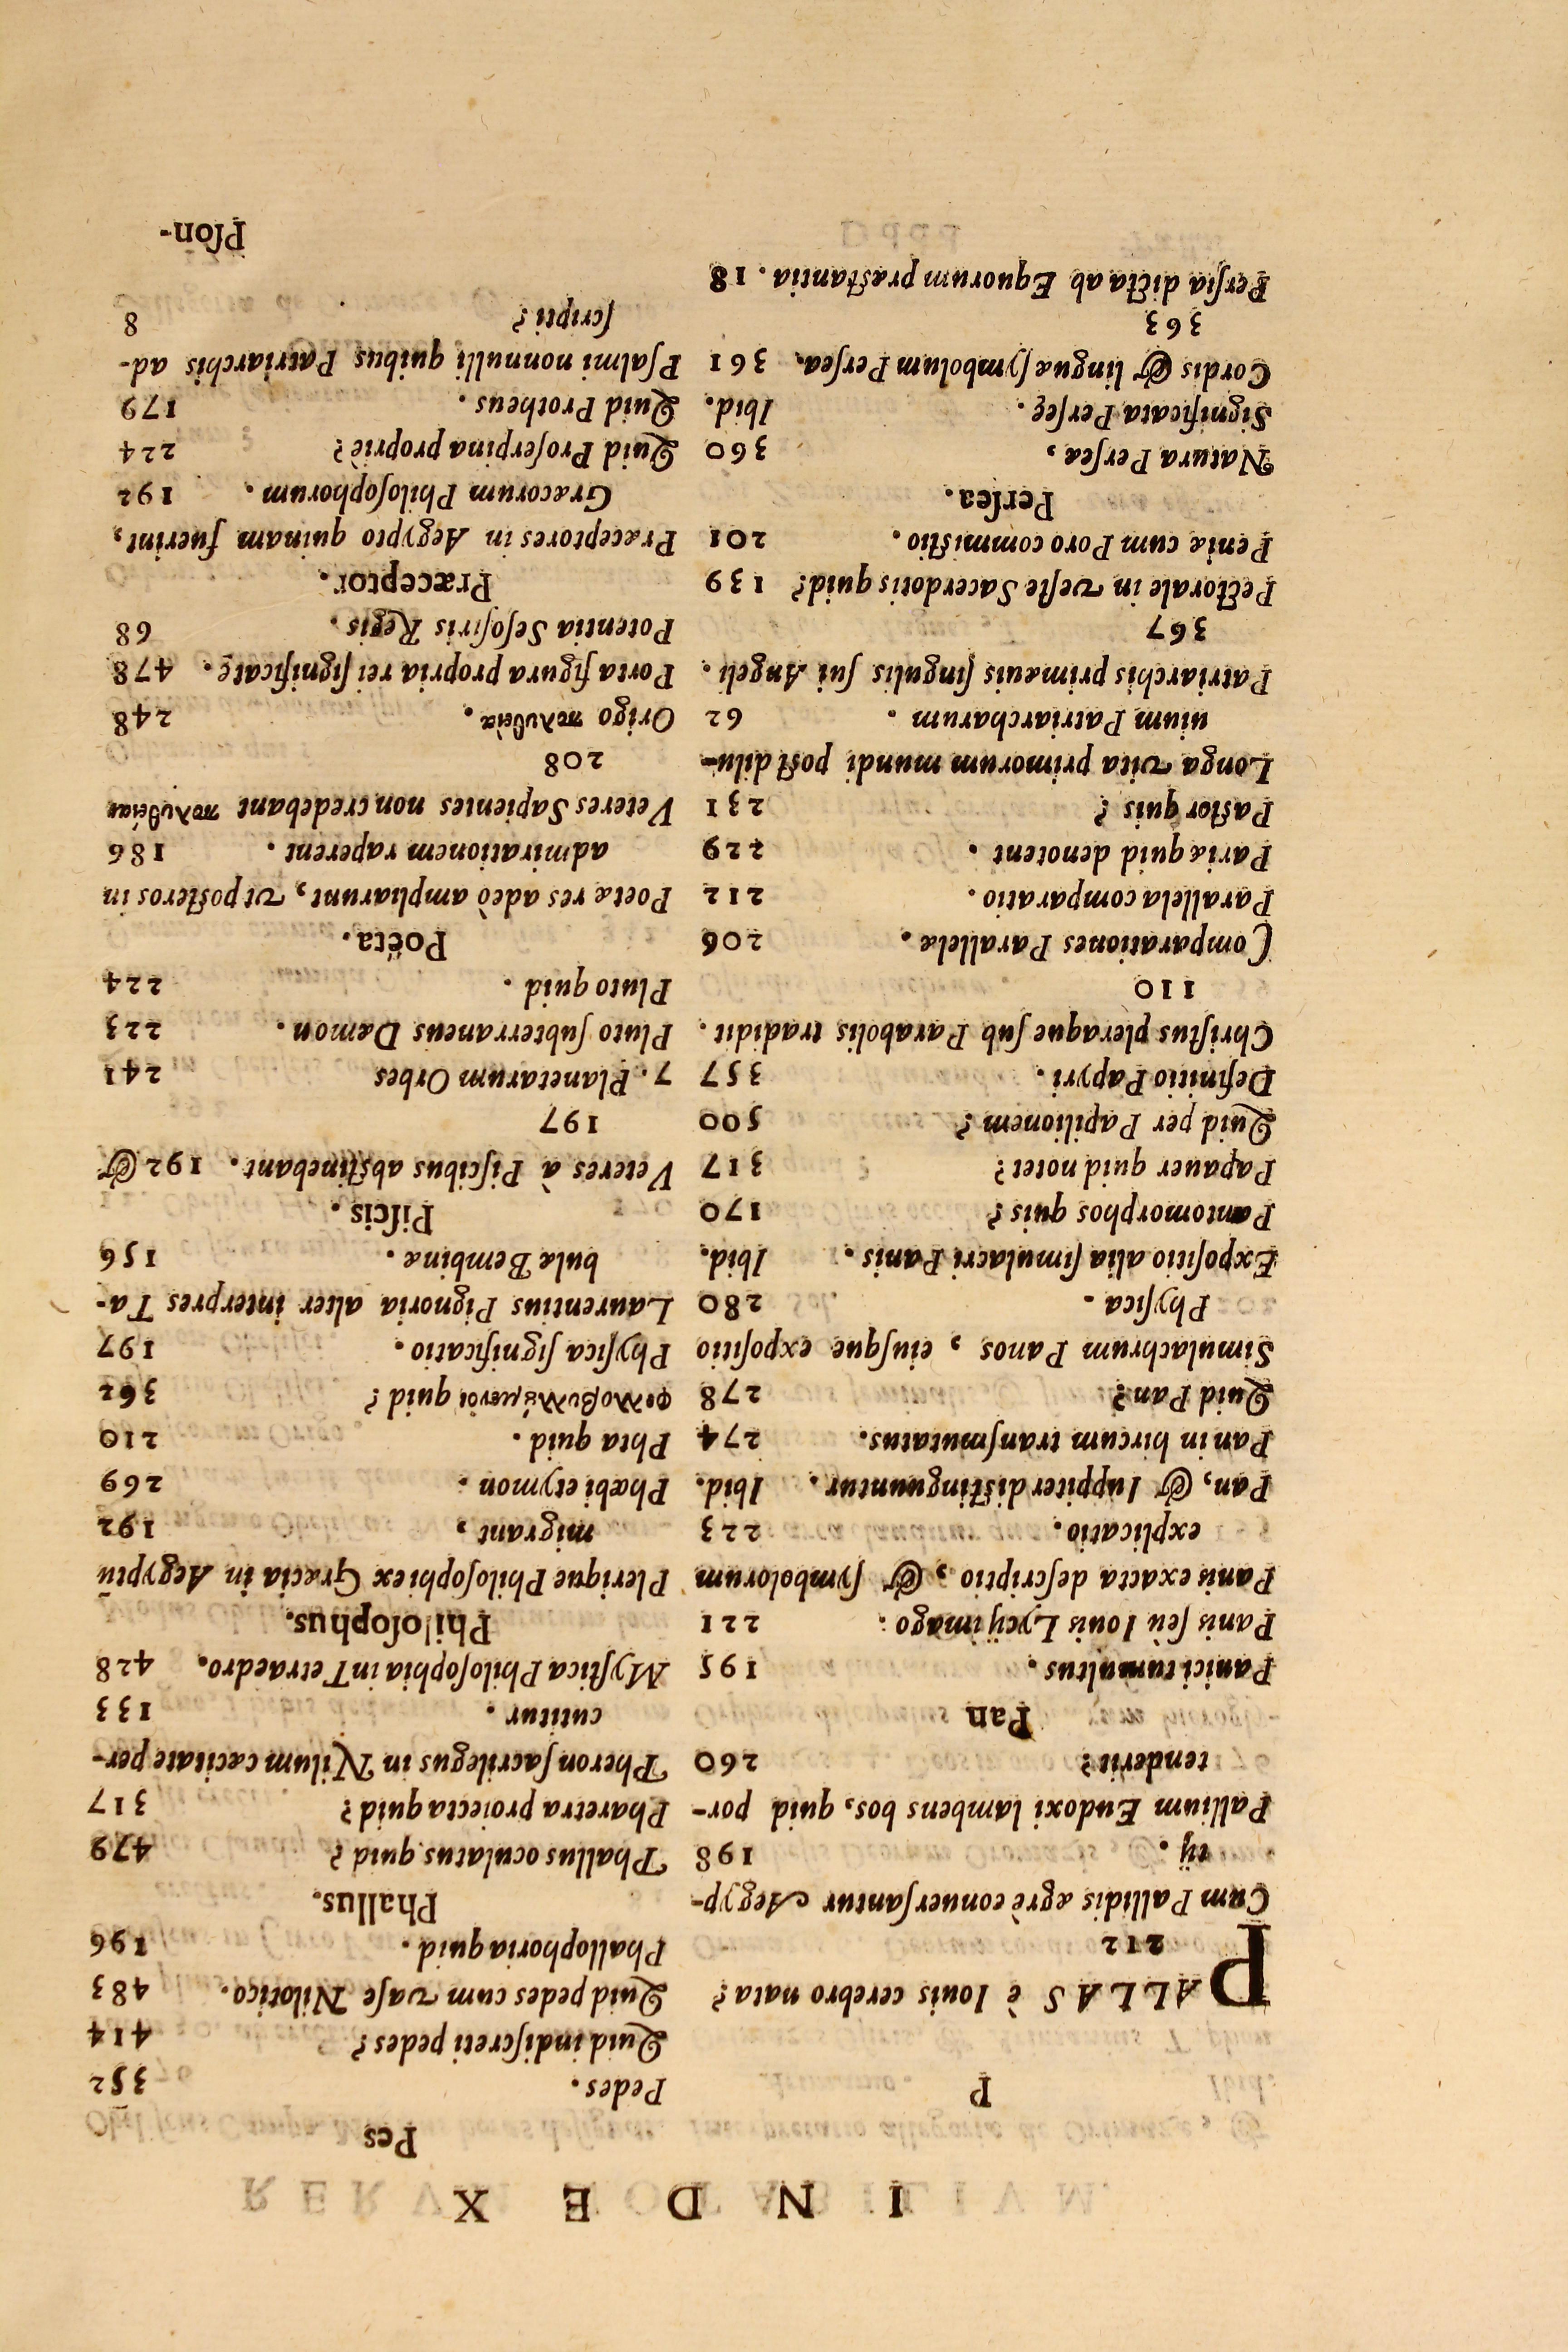 I N D E X
P
PALLAS è Iouis cerebro nata?
212
Cum Pallidis ægrè conuersantur Aegyp-
tij. 198
Pallium Eudoxi lambens bos, quid por-
tenderit? 260
Pan
Panici tumultus. 195
Panis seù Iouis Lycij imago. 221
Panis exacta descriptio, & symbolorum
explicatio. 223
Pan, & Iuppiter distinguuntur. Ibid.
Pan in hircum transmutatus. 274
Quid Pan? 278
Simulachrum Panos, eiusque expositio
Physica. 280
Expositio alia simulacri Panis. Ibid.
Pantomorphos quis? 170
Papauer quid notet? 317
Quid per Papilionem? 500
Definitio Papyri. 357
Christus pleraque sub Parabolis tradidit.
110
Comparationes Parallelæ. 206
Parallela comparatio. 212
Paria quid denotent. 229
Pastor quis? 231
Longa vita primorum mundi post dilu-
uium Patriarcharum. 62
Patriarchis primæuis singulis sui Angeli.
367
Pectorale in veste Sacerdotis quid? 139
Peniæ cum Poro commistio. 201
Persea.
Natura Perseæ, 360
Significata Perseę. Ibid.
Cordis & linguæ symbolum Persea. 361
363
Persia dicta ab Equorum præstantia. 18
Pes
Pedes. 352
Quid indiscreti pedes? 414
Quid pedes cum vase Nilotico. 483
Phallophoria quid. 196
Phallus.
Phallus oculatus quid? 479
Pharetra proiecta quid? 317
Pheron sacrilegus in Nilum cæcitate per-
cutitur. 133
Mystica Philosophia in Tetraedro. 428
Philosophus.
Plerique Philosophi ex Græcia in Aegyptū
migrant, 192
Phœbi etymon. 269
Phta quid. 210
quid? 362
Physica significatio. 197
Laurentius Pignoria alter interpres Ta-
bulæ Bembinæ. 156
Piscis.
Veteres à Piscibus abstinebant. 192 &
197
7. Planetarum Orbes 241
Pluto subterraneus Dæmon. 223
Pluto quid. 224
Poëta.
Poetæ res adeò ampliarunt, vt posteros in
admirationem raperent. 186
Veteres Sapientes non credebant πολυθείαν
208
Origo πολυθείας. 248
Porta figura propria rei significatę. 478
Potentia Sesostris Regis. 68
Præceptor.
Præceptores in Aegypto quinam fuerint,
Græcorum Philosophorum. 192
Quid Proserpina propriè? 224
Quid Protheus. 179
Psalmi nonnulli quibus Patriarchis ad-
scripti? 8
Pson-